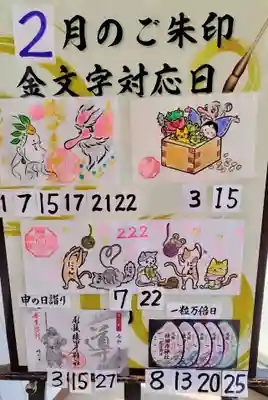 2月のご朱印
金文字対応日
1 7 15 17 21 22
3 15
222
7 22
申の日詣り
一粒万倍日
導
3 15 27
8 13 20 25